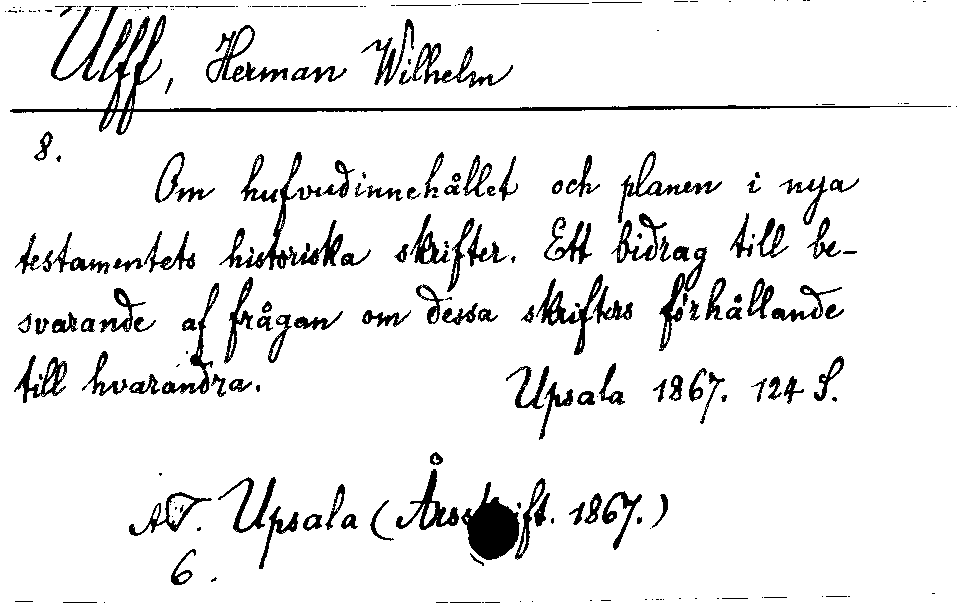 Ulff, Herman Wilhelm
8.
Om hufvudinnehållet och planen i nya
testamentets historiska skrifter. Ett bidrag till be-
svarande af frågan om dessa skrifters förhållande
till hvarandra.
Upsala 1867. 124 S.
AT. Upsala (Årsskrift. 1867.)
6.